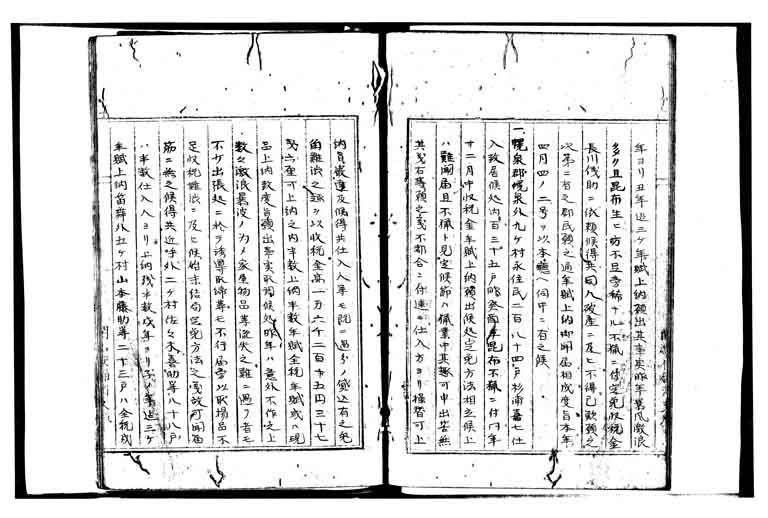 年ヨリ丑年迄三ケ年賦上納願出其事実昨年暴風激浪
多ク且昆布生ニ妨不足多稀ナル不猟ニ付定免収税金
長川儀助ニ依頼候得共同人破産ニ及ヒ不得已歎願之
次第ニ有之郡民願之通年賦上納御聞届相成度旨本年
四月四ノ二号ヲ以本廳ヘ伺中ニ有之候
一幌泉郡幌泉外九ケ村永住民二百八十四戸杉浦嘉七仕
入致居候処内百三十五戸昨癸酉年昆布不猟ニ付同年
十二月中収税金年賦上納願出候処定免方法相立候上
ハ難聞届且不猟ト見定候節ハ猟業中其趣可申出筈無
其義右等願之義不都合ニ付達ニ仕入方ヨリ操替可上
納旨厳達及候得共仕入人等モ既ニ過分ノ貸込有之免
角難渋之趣ヲ以収税金高一万六千二百廿五円三十七
銭六厘可上納之内半数上納半数年賦金税年賦或ハ現
品上納致度旨願出事実取調候処昨年ハ意外不作之上
数々激浪暴波ノ為メ家産物品等流失之難ニ遇フ者モ
不少出張処ニ於テ誘導取締等モ不行届旁以取揚品不
足収税難渋ニ及ヒ候始末結句定免方法之憂故可聞届
筋ニ無之候得共近呼外二ケ村佐々木喜助等八十八戸
ハ半数仕入人ヨリ上納残半数戌年ヨリ子ノ年迄三ケ
年賦上納笛舞外五ケ村山本藤助等二十三戸ハ全税戌